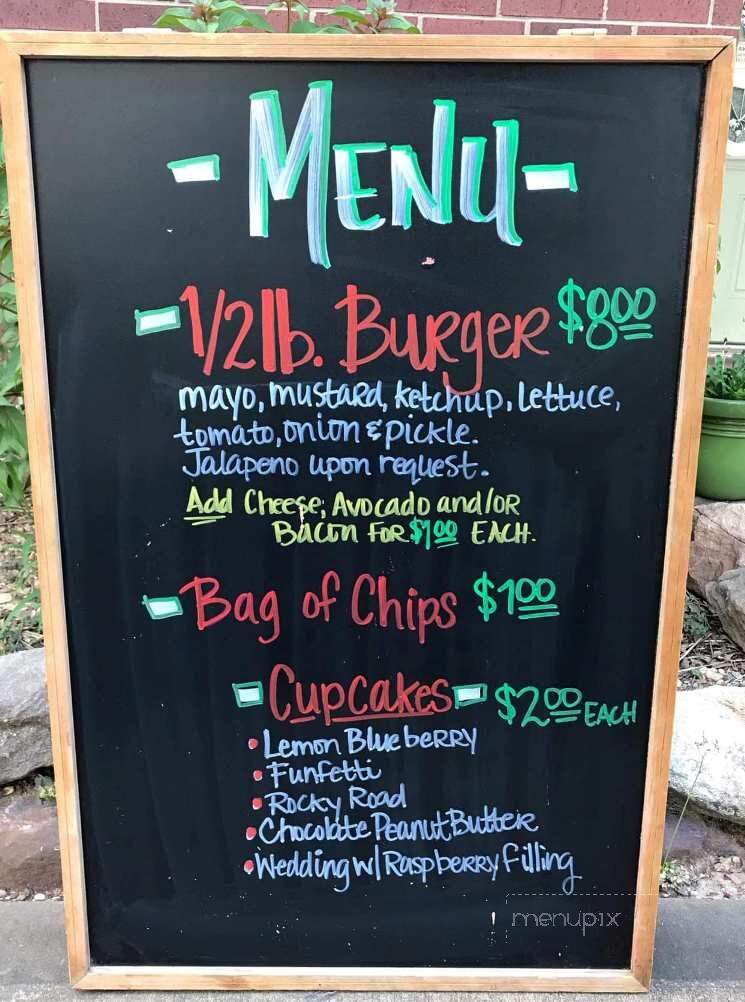 - MENU -
- 1/2 lb. BURGER $8.00
mayo, mustard, ketchup, lettuce,
tomato, onion & pickle.
Jalapeno upon request.
Add Cheese, Avocado and/or
Bacon for $1.00 EACH.
- Bag of Chips $1.00
- Cupcakes - $2.00 EACH
• Lemon Blueberry
• Funfetti
• Rocky Road
• Chocolate Peanut Butter
• Wedding w/ Raspberry filling
menupix